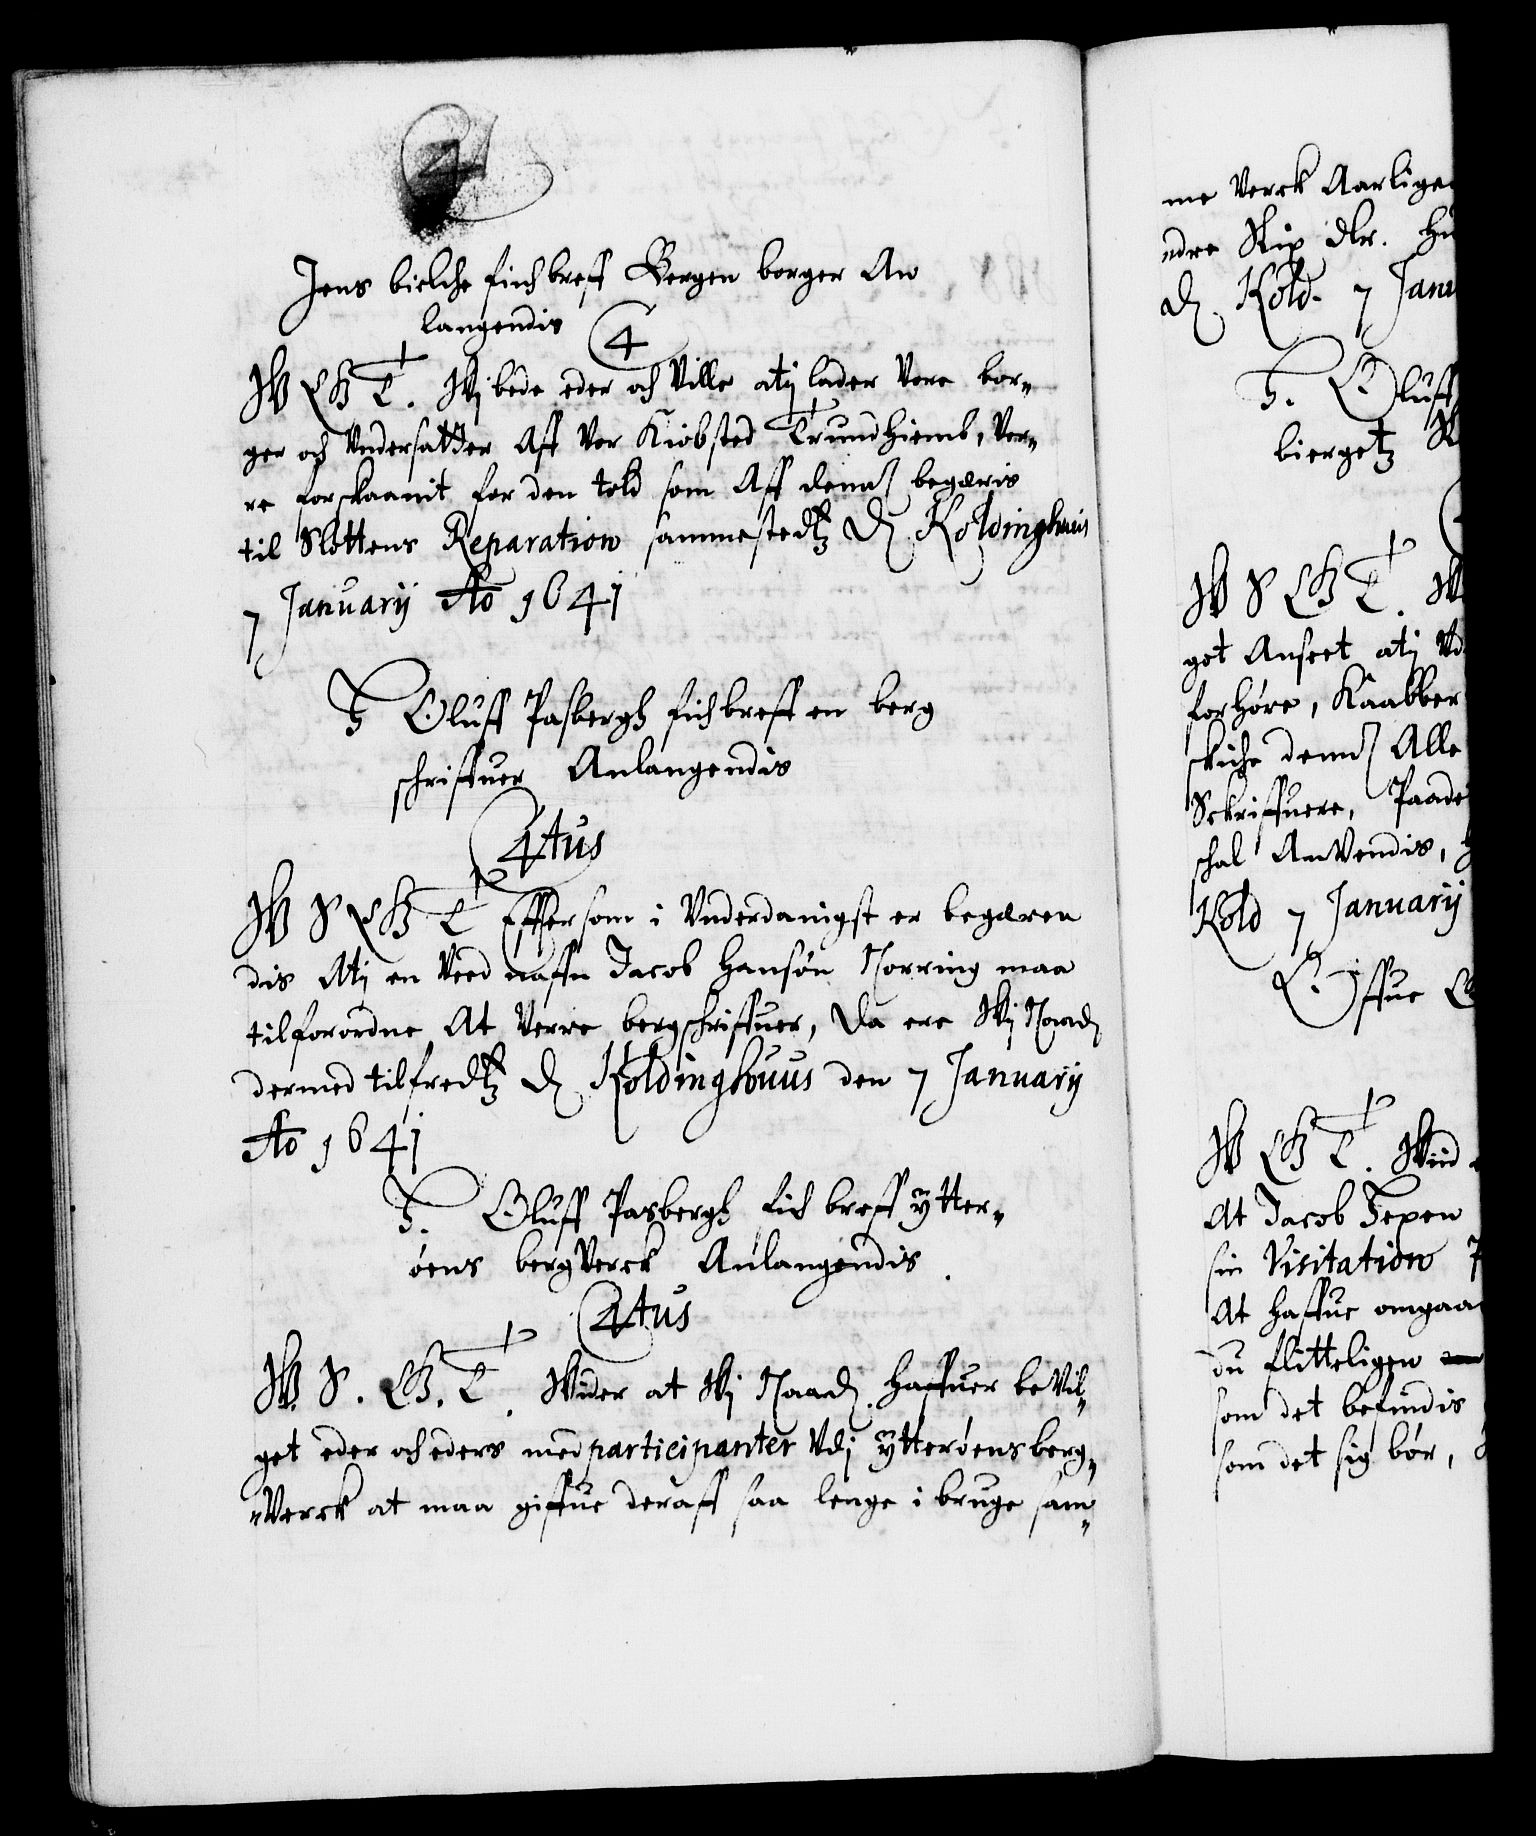 Jens bielche fich breff Bergen borger An
langendis 4
W G T. Wij bede eder och Ville atij lader Vere bor¬
ger och Undersatter Aff Vor Kiøbsted Trundhiemb, Ver¬
re forskaanit for den told som Aff dennom begæris
til Slottens Reparation sammestedtz D. Koldinghuis
7 Januarij Ao 1641
H Oluff Pasbergh fich breff en berg
schriffuer Anlangendis
4tus
W S G T Effter som i Underdanigst er begæren
dis Atj en Ved naffn Jacob Hansøn Norring maa
tilforordne At Verre bergschriffuer, da ere Wij Naad
dermed tilfredtz D. Koldinghuus den 7 Januarij
Ao 1641
H. Oluff Pasbergh fich breff ÿtter¬
øens bergVerck Anlangendis
4tus
W. S. G. T. Wider at Wij Naad. haffuer beVil¬
get eder och eders med participanter Vdj ÿtterøens berg¬
Verck at maa giffue deraff saa lenge i bruge sam¬
me Verck Aarlige
ndre Skip dlr.
D. Kold. 7 Janu
H. Oluff
biergetz
W S G T. W
got Anseet atj Vd
forhøre, Kaabber
skiche dennom Alle
Sckriffuere, Paade
schal AnVendis,
Kold 7 Januarij
Offue
W G T. Wiid
At Jacob Jepen
sin Visitation
At haffue omgaa
du flitteligen
som det befindis
som det sig bør,